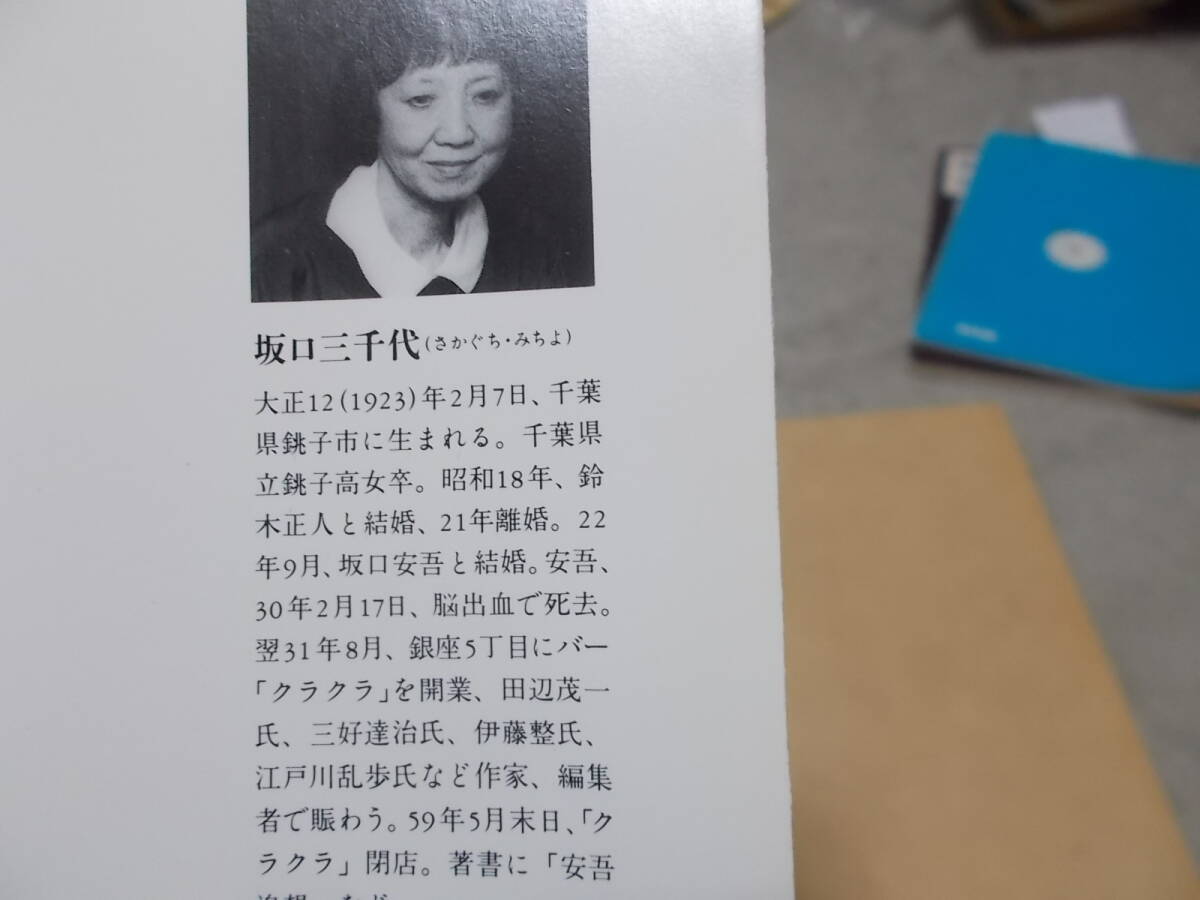 坂口三千代(さかぐち・みちよ)
大正12(1923)年2月7日、千葉
県銚子市に生まれる。千葉県
立銚子高女卒。昭和18年、鈴
木正人と結婚、21年離婚。22
年9月、坂口安吾と結婚。安吾、
30年2月17日、脳出血で死去。
翌31年8月、銀座5丁目にバー
「クラクラ」を開業、田辺茂一
氏、三好達治氏、伊藤整氏、
江戸川乱歩氏など作家、編集
者で賑わう。59年5月末日、「ク
ラクラ」閉店。著書に「安吾